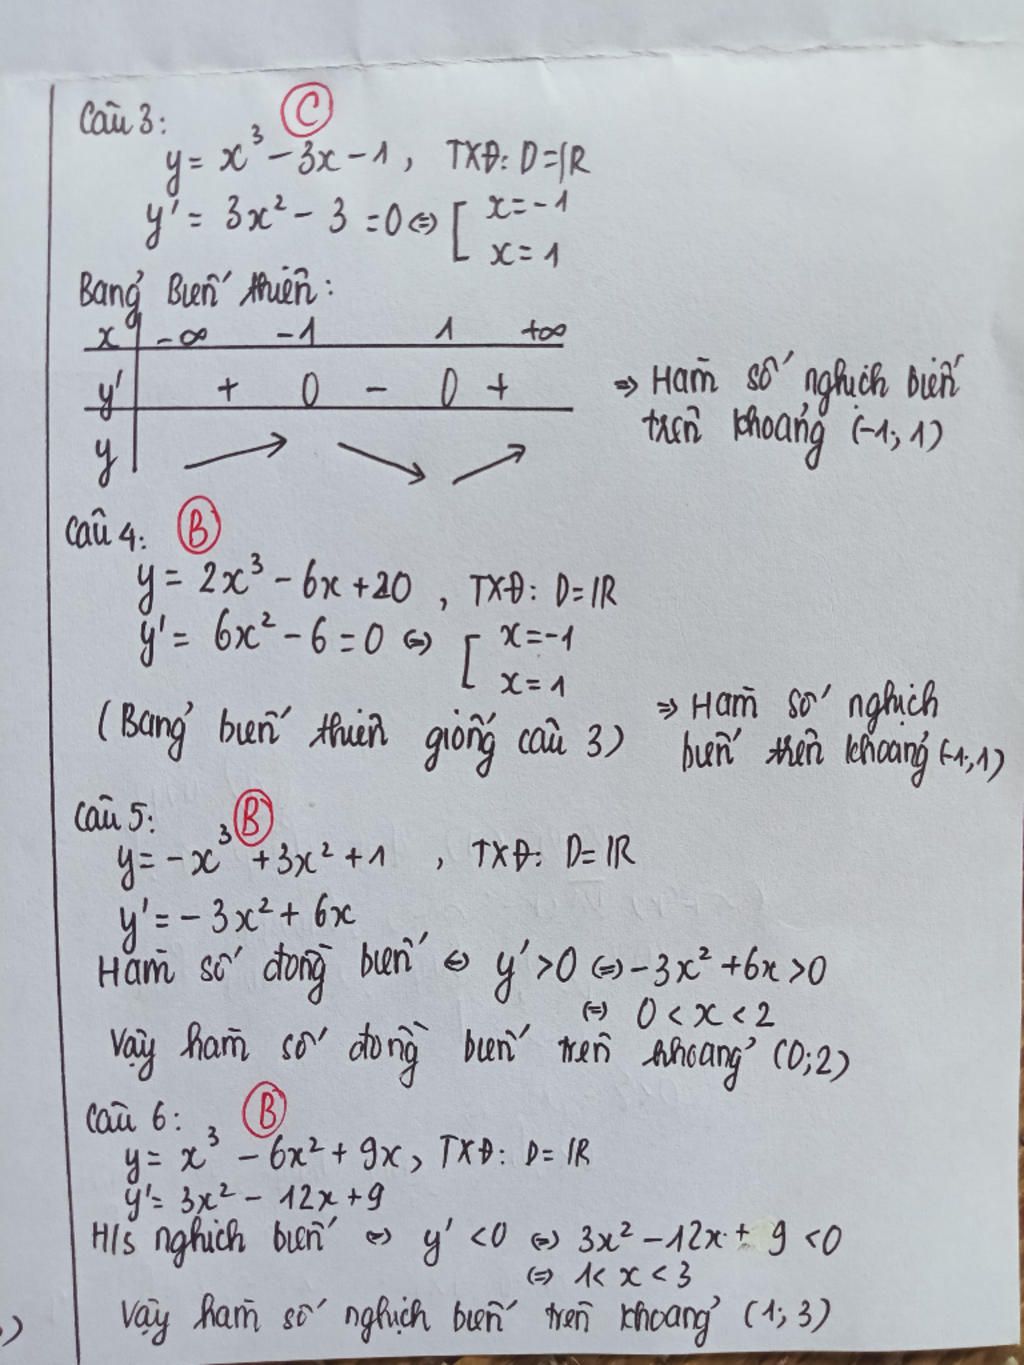 Câu 3: C
y = x³ - 3x - 1, TXĐ: D = ℝ
y' = 3x² - 3 = 0 ⇔ [ x = -1
x = 1
Bảng Biến thiên:
x -∞ -1 1 +∞
y' + 0 - 0 +
y ↗ ↘ ↗
⇒ Hàm số nghịch biến
trên khoảng (-1; 1)
Câu 4: B
y = 2x³ - 6x + 20, TXĐ: D = ℝ
y' = 6x² - 6 = 0 ⇔ [ x = -1
x = 1
(Bảng biến thiên giống câu 3)
⇒ Hàm số nghịch
biến trên khoảng (-1; 1)
Câu 5: B
y = -x³ + 3x² + 1, TXĐ: D = ℝ
y' = -3x² + 6x
Hàm số đồng biến ⇔ y' > 0 ⇔ -3x² + 6x > 0
⇔ 0 < x < 2
Vậy hàm số đồng biến trên khoảng (0; 2)
Câu 6: B
y = x³ - 6x² + 9x, TXĐ: D = ℝ
y' = 3x² - 12x + 9
H/s nghịch biến ⇔ y' < 0 ⇔ 3x² - 12x + 9 < 0
⇔ 1 < x < 3
Vậy hàm số nghịch biến trên khoảng (1; 3)